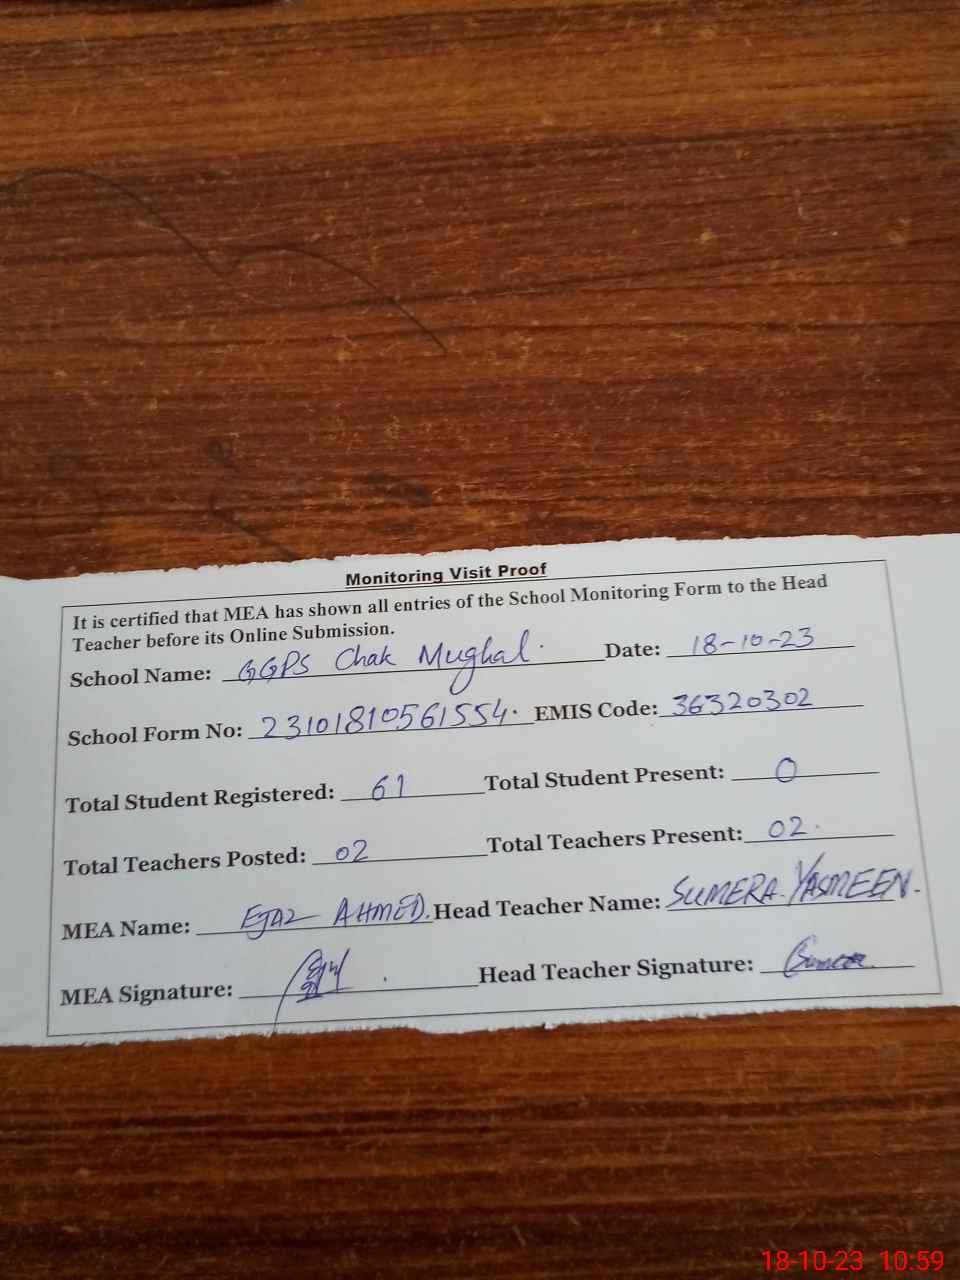 Monitoring Visit Proof
It is certified that MEA has shown all entries of the School Monitoring Form to the Head
Teacher before its Online Submission.
School Name: GGPS Chak Mughal. Date: 18-10-23
School Form No: 23101810561554. EMIS Code: 36320302
Total Student Registered: 61 Total Student Present: 0
Total Teachers Posted: 02 Total Teachers Present: 02.
MEA Name: EJAZ AHMED. Head Teacher Name: SUMERA YASMEEN.
MEA Signature: Head Teacher Signature:
18-10-23 10:59